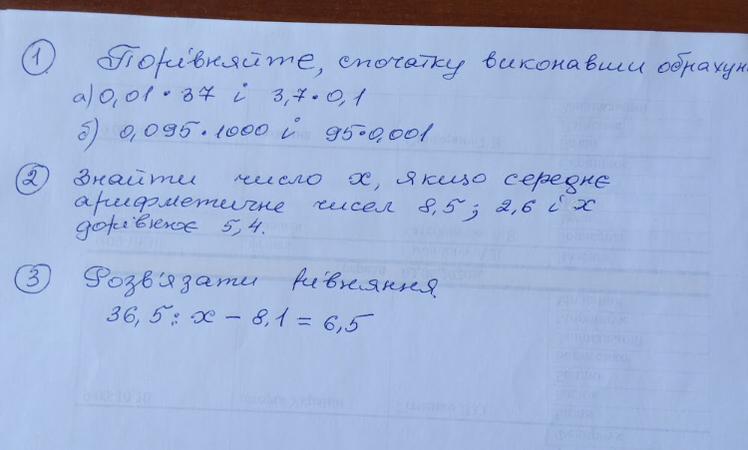 1 Порівняйте, спочатку виконавши обрахун
а) 0,01 · 37 і 3,7 · 0,1
б) 0,095 · 1000 і 95 · 0,001
2 Знайти число x, якщо середнє
арифметичне чисел 8,5; 2,6 і x
дорівнює 5,4.
3 Розв'язати рівняння.
36,5 : x - 8,1 = 6,5